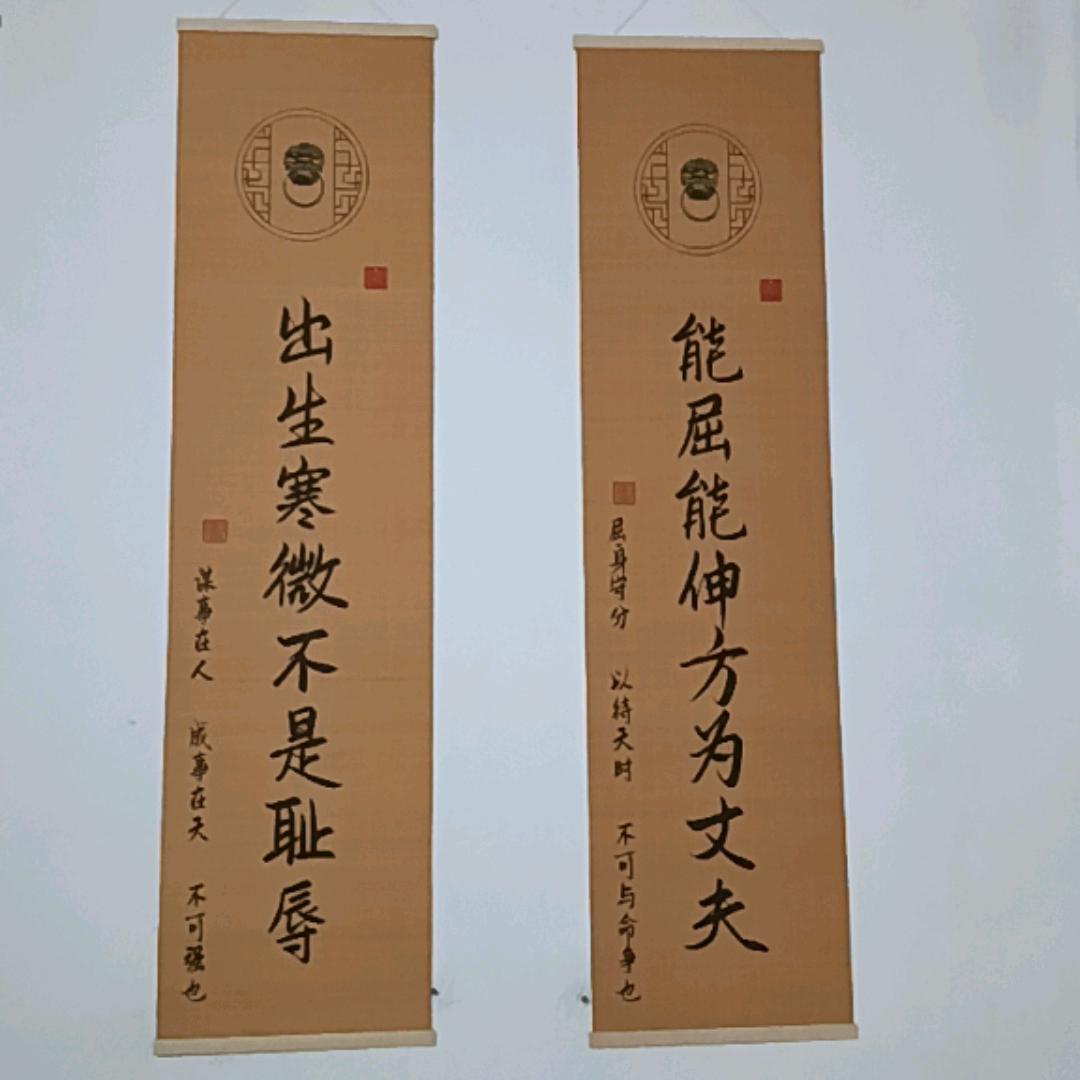 出生寒微不是耻辱
谋事在人 成事在天 不可强也
能屈能伸方为丈夫
屈身守分 以待天时 不可与命争也